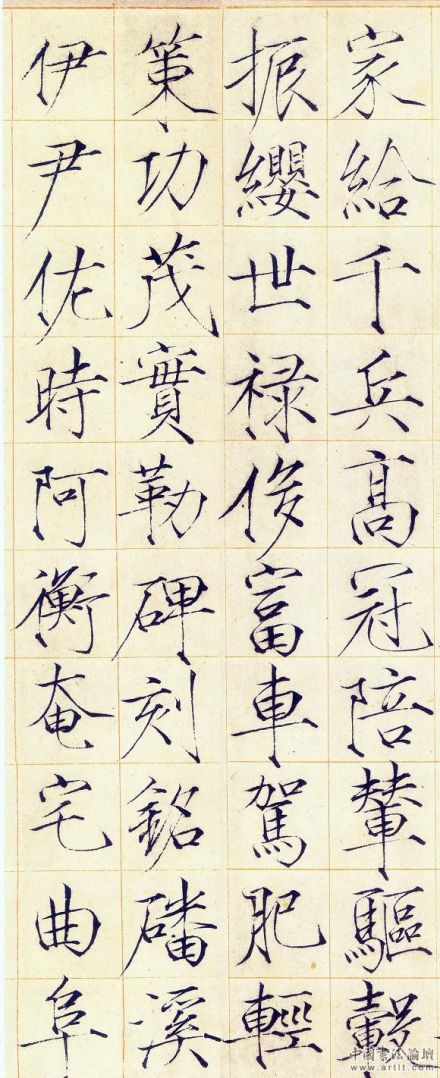 家給千兵髙冠陪輦驅轂
振纓世禄侈富車駕肥輕
策功茂實勒碑刻銘磻溪
伊尹佐時阿衡奄宅曲阜
中國書法論壇
www.artlt.com